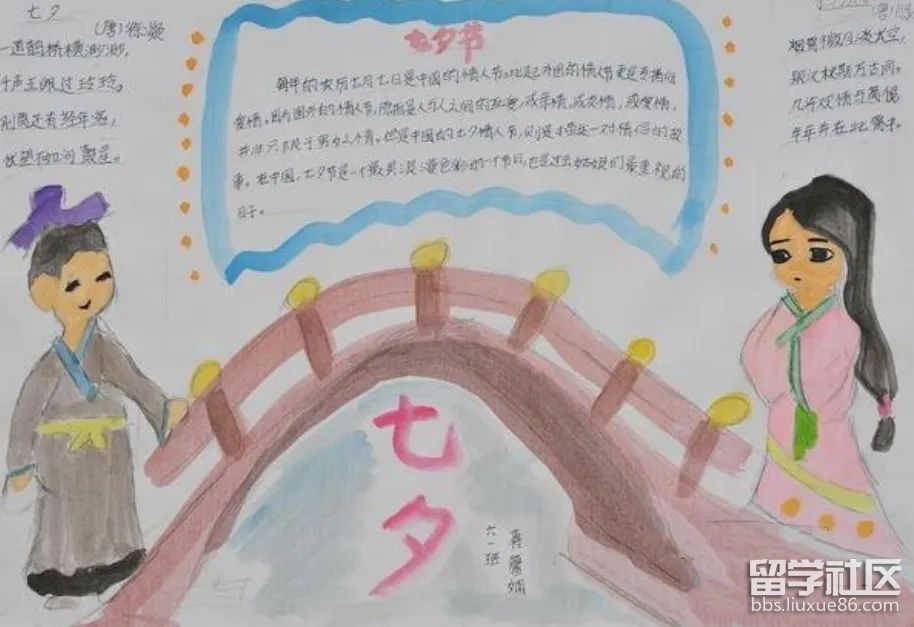 七夕
(唐)徐凝
一道鹊桥横渺渺,
千声玉佩过玲玲。
别离还有经年客,
怅望不如河鼓星。
七夕节
每年的农历七月七日是中国的情人节。比起外国的情人节更是充满
爱情。因为国外的情人节,指的是人与人之间的互爱,成年情,或友情,或爱情,
并非只限于男女之情。但是中国的七夕情人节,一对情侣的故
事。在中国,七夕节是一个最具浪漫色彩的一个节日,也是过去姑娘们最重视的
日子。
(唐)
烟霄微月澹长空,
银汉秋期万古同。
几许欢情与离恨
年年并在此宵中。
七夕
六一班
留学社区
bbs.liuxue86.com